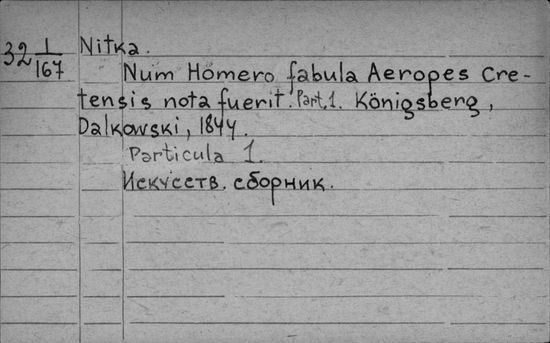 32 1/167 Nitka.
Num Homero fabula Aeropes Cre-
tensis nota fuerit. Part. 1. Königsberg,
Dalkowski, 1844.
Particula 1.
Искусств. сборник.